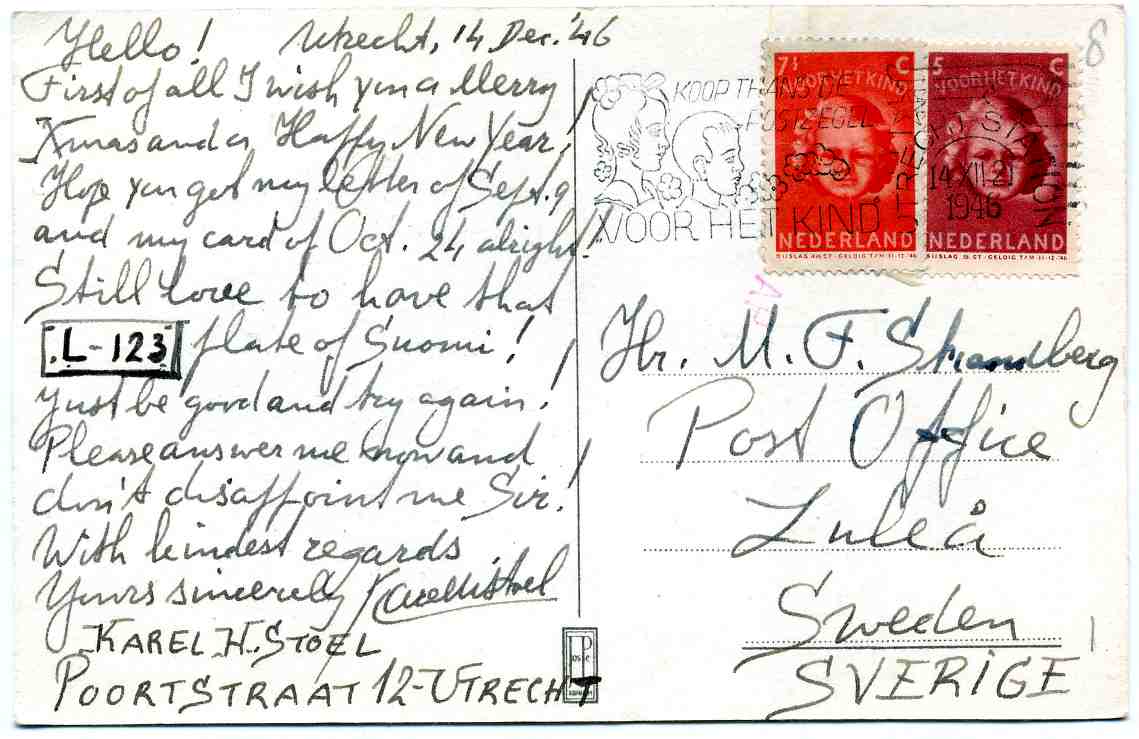 Hello! Utrecht, 14 Dec. '46
First of all I wish you a Merry
Xmas and a Happy New Year!
Hope you got my letter of Sept. 9
and my card of Oct. 24 alright!
Still love to have that
L-123 plate of Suomi!
Just be good and try again!
Please answer me now and
don't disappoint me Sir!
With kindest regards
Yours sincerely
KAREL H. STOEL
POORTSTRAAT 12-UTRECHT
8
KOOP THANS DE
POSTZEGEL
VOOR HET KIND
7½ C
VOOR HET KIND
NEDERLAND
BIJSLAG 4½ CT - GELDIG T/M 31-12-'46
5 C
VOOR HET KIND
NEDERLAND
14 XII 21
1946
STATION
Hr. M. F. Strandberg
Post Office
Luleå
Sweden
SVERIGE